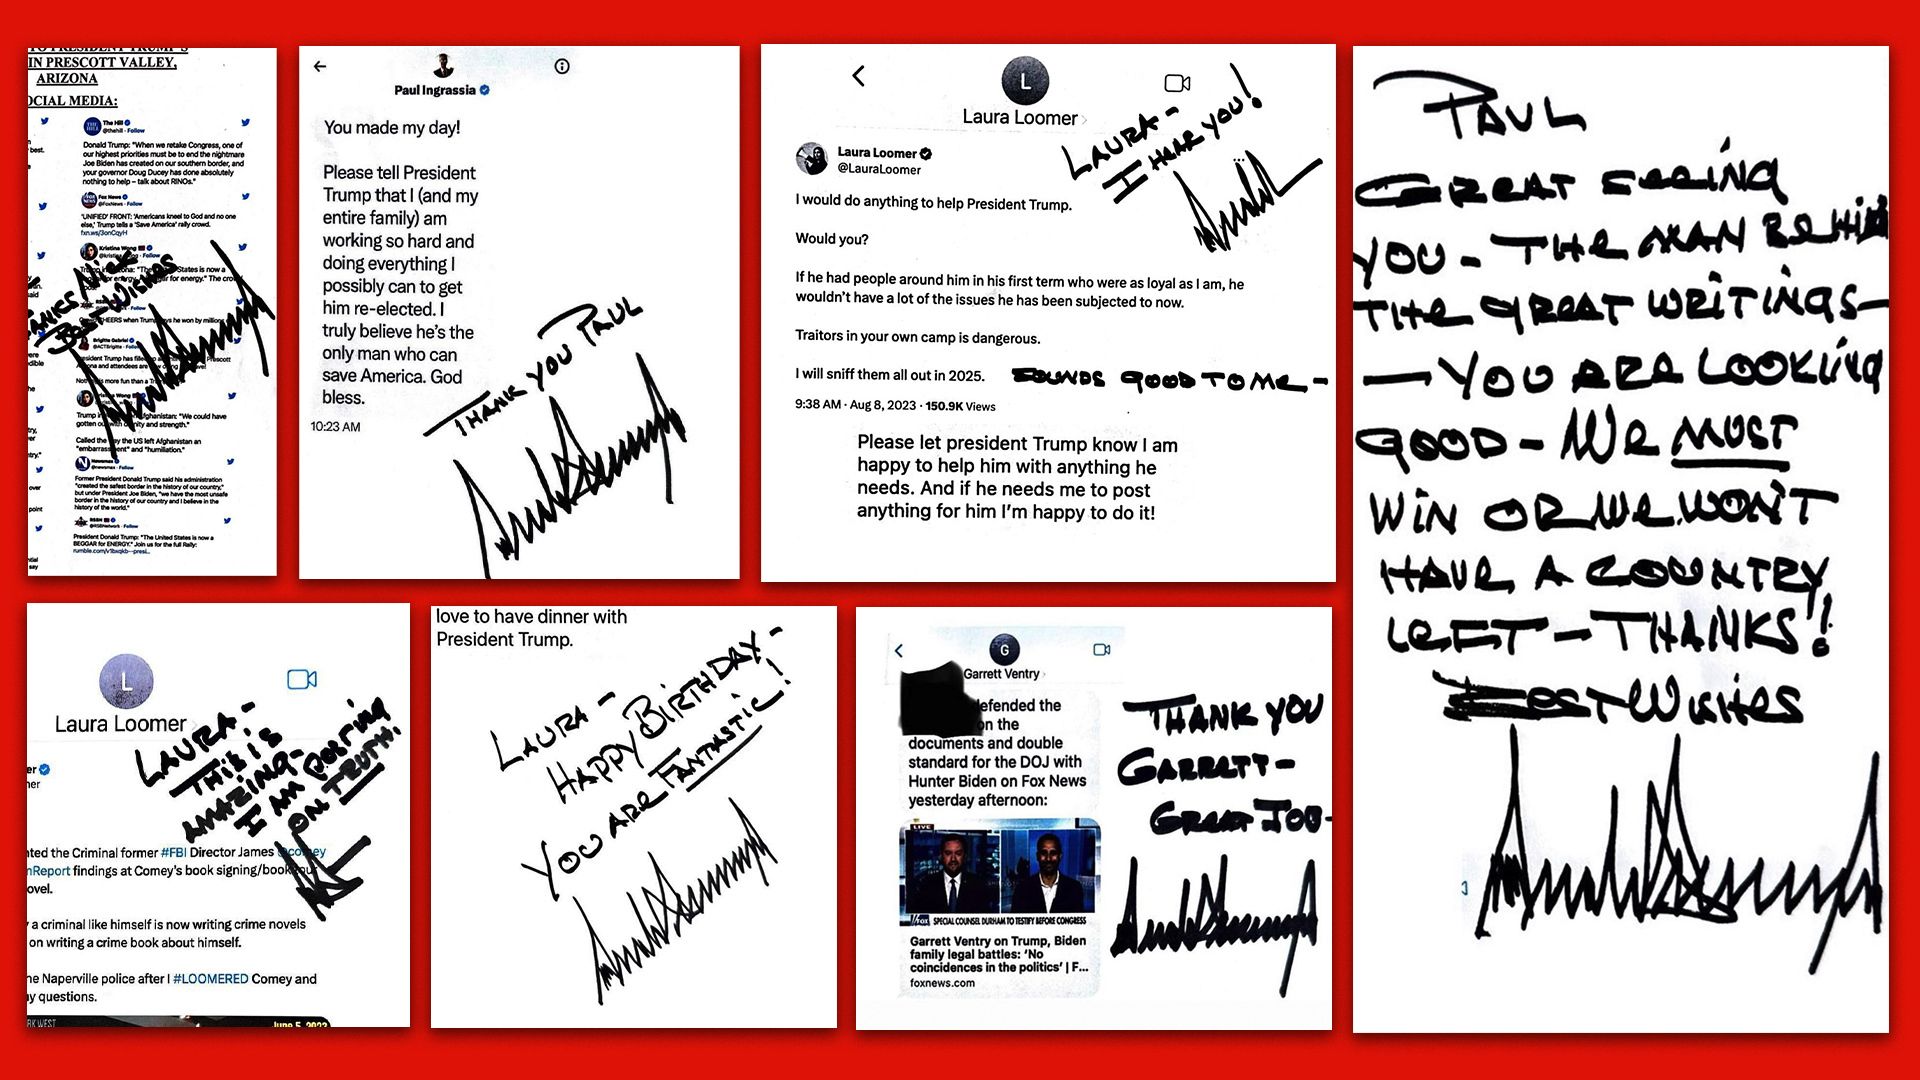 TO PRESIDENT TRUMP'S
IN PRESCOTT VALLEY,
ARIZONA
OCIAL MEDIA:
best.
The Hill
@thehill · Follow
Donald Trump: "When we retake Congress, one of
our highest priorities must be to end the nightmare
Joe Biden has created on our southern border, and
your governor Doug Ducey has done absolutely
nothing to help – talk about RINOs."
Fox News
@FoxNews · Follow
'UNIFIED' FRONT: 'Americans kneel to God and no one
else,' Trump tells a 'Save America' rally crowd.
fxn.ws/3onCqyH
Kristina Wong
States is now a
for energy." The
said
NICK
BEST WISHES
CHEERS when Trump says he won by millions
Brigitte Gabriel
@ACTBrigitte · Follow
President Trump has
Prescott
and attendees are
more fun than a
Trump
Afghanistan: "We could have
gotten out with dignity and strength."
Called the way the US left Afghanistan an
"embarrassment" and "humiliation."
Newsmax
@newsmax · Follow
over
Former President Donald Trump said his administration
"created the safest border in the history of our country,"
but under President Joe Biden, "we have the most unsafe
border in the history of our country and I believe in the
history of the world."
point
RSBN
@RSBNetwork · Follow
President Donald Trump: "The United States is now a
BEGGAR for ENERGY." Join us for the full Rally:
say
Paul Ingrassia
You made my day!
Please tell President
Trump that I (and my
entire family) am
working so hard and
doing everything I
possibly can to get
him re-elected. I
truly believe he's the
only man who can
save America. God
bless.
10:23 AM
THANK YOU PAUL
L
Laura Loomer
LAURA –
I HEAR YOU!
Laura Loomer
@LauraLoomer
I would do anything to help President Trump.
Would you?
If he had people around him in his first term who were as loyal as I am, he
wouldn't have a lot of the issues he has been subjected to now.
Traitors in your own camp is dangerous.
I will sniff them all out in 2025. SOUNDS GOOD TO ME –
9:38 AM · Aug 8, 2023 · 150.9K Views
Please let president Trump know I am
happy to help him with anything he
needs. And if he needs me to post
anything for him I'm happy to do it!
PAUL
GREAT SEEING
YOU – THE MAN BEHIND
THE GREAT WRITINGS –
– YOU ARE LOOKING
GOOD – WE MUST
WIN OR WE WON'T
HAVE A COUNTRY
LEFT – THANKS!
BEST WISHES
L
Laura Loomer
LAURA –
THIS IS
AMAZING –
I AM POSTING
ON TRUTH.
er
ner
nted the Criminal former #FBI Director James @comey
nReport findings at Comey's book signing/book tour
ovel.
y a criminal like himself is now writing crime novels
on writing a crime book about himself.
he Naperville police after I #LOOMERED Comey and
y questions.
RK WEST
June 5, 2023
love to have dinner with
President Trump.
LAURA –
HAPPY BIRTHDAY –
YOU ARE FANTASTIC!
G
Garrett Ventry
defended the
on the
documents and double
standard for the DOJ with
Hunter Biden on Fox News
yesterday afternoon:
LIVE
FOX
SPECIAL COUNSEL DURHAM TO TESTIFY BEFORE CONGRESS
Garrett Ventry on Trump, Biden
family legal battles: 'No
coincidences in the politics' | F...
foxnews.com
THANK YOU
GARRETT –
GREAT JOB –